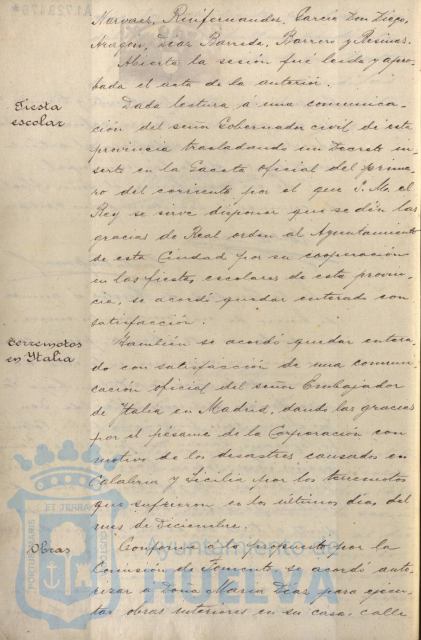 A1.723.176
Narvaez, Rinifernandez, García Don Diego,
Aragon, Díaz Barreda, Barrero y Rosinas.
Abierta la sesión fué leída y apro-
bada el acta de la anterior.
Fiesta
escolar
Dada lectura á una comunica-
ción del señor Gobernador civil de esta
provincia trasladando un Decreto in-
serto en la Gaceta oficial del prime-
ro del corriente por el que S. M. el
Rey se sirve disponer que se dén las
gracias de Real orden al Ayuntamiento
de esta Ciudad por su cooperación
en las fiestas escolares de esta provin-
cia, se acordó quedar enterado con
satisfacción.
Terremotos
en Italia
También se acordó quedar entera-
do con satisfacción de una comuni-
cación oficial del señor Embajador
de Italia en Madrid, dando las gracias
por el pésame de la Corporación con
motivo de los desastres causados en
Calabria y Sicilia por los terremotos
que sufrieron en los últimos días del
mes de Diciembre.
Obras
Conforme á lo propuesto por la
Comisión de Fomento, se acordó auto-
rizar a Doña María Díaz para ejecu-
tar obras interiores en su casa calle
PORTUS MARIS ET TERRAE CUSTODIA
Ayuntamiento de
HUELVA